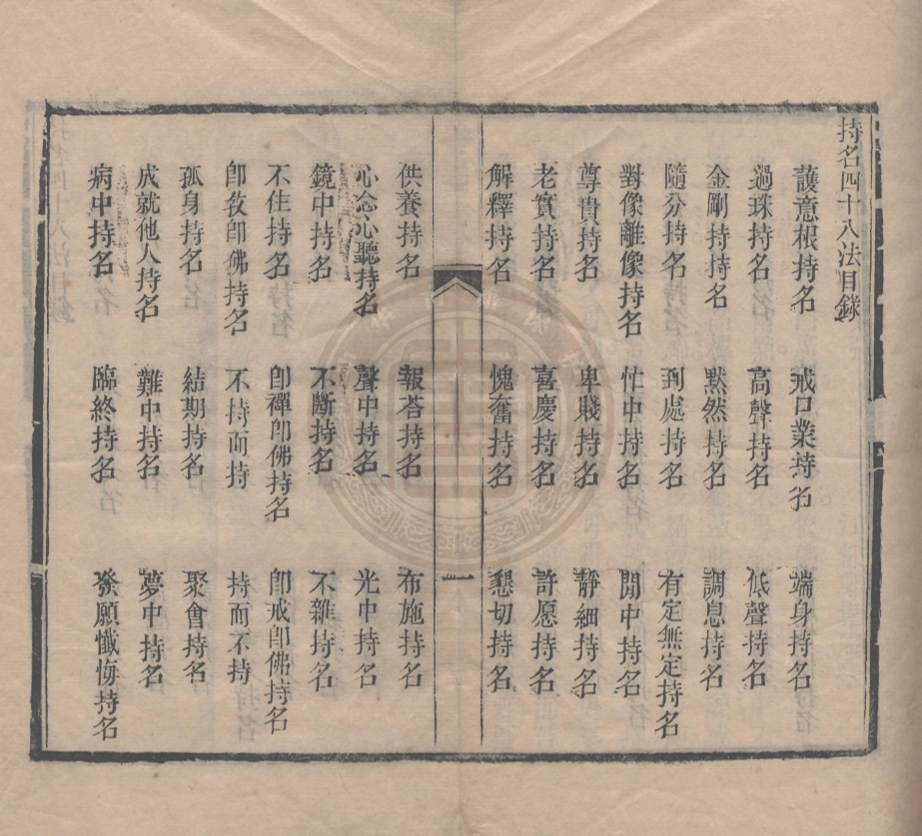 持名四十八法目錄
護意根持名 戒口業持名 端身持名
過珠持名 高聲持名 低聲持名
金剛持名 默然持名 調息持名
隨分持名 到處持名 有定無定持名
對像離像持名 忙中持名 閒中持名
尊貴持名 卑賤持名 靜細持名
老實持名 喜慶持名 許愿持名
解釋持名 愧奮持名 懇切持名
一
供養持名 報荅持名 布施持名
心念心聽持名 聲中持名 光中持名
鏡中持名 不斷持名 不雜持名
不住持名 卽禪卽佛持名 卽戒卽佛持名
卽敎卽佛持名 不持而持 持而不持
孤身持名 結期持名 聚會持名
成就他人持名 難中持名 夢中持名
病中持名 臨終持名 發願懺悔持名